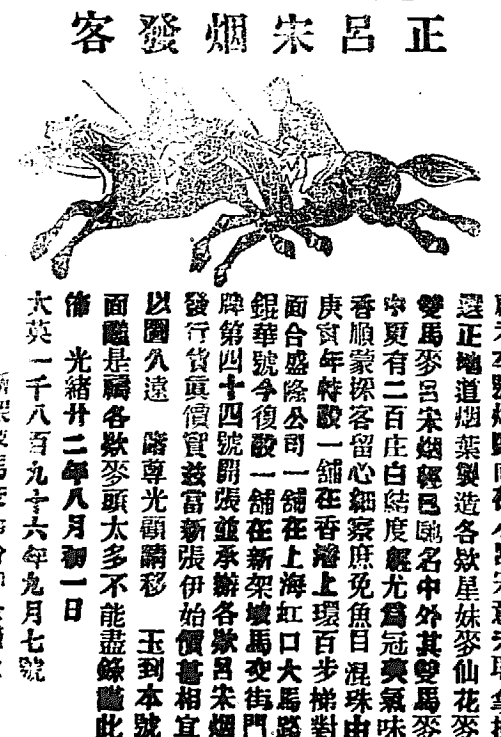 正呂宋烟發客
選正地道烟葉製造各欵星妹麥仙花麥
雙馬麥呂宋烟經已馳名中外其雙馬麥
中夏有二百庄白結度 尤爲冠 氣味
香順蒙採客留心細察庶免魚目混珠由
庚寅年特設一舖在香港上環百步梯對
面合盛隆公司一舖在上海虹口大馬路
錕華號今復設一舖在新架坡馬交街門
牌第四十四號開張並承辦各欵呂宋烟
發行貨真價實茲當新張伊始價甚相宜
以圖久遠 諸尊光顧請移 玉到本號
面 是禱各欵麥頭太多不能盡錄謹此
佈 光緒廿二年八月初一日
大英一千八百九十六年九月七號